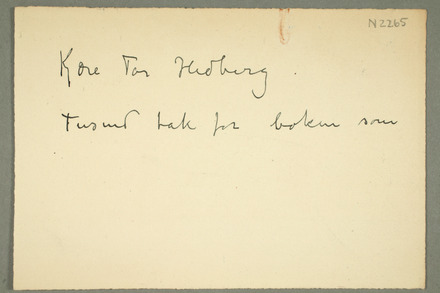 N2265
Kære Tor Hedberg.
Tusind tak for boken som